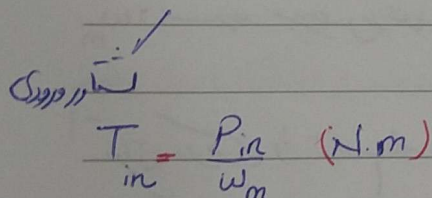 گشتاور ورودی
T_in = P_in / ω_m (N.m)